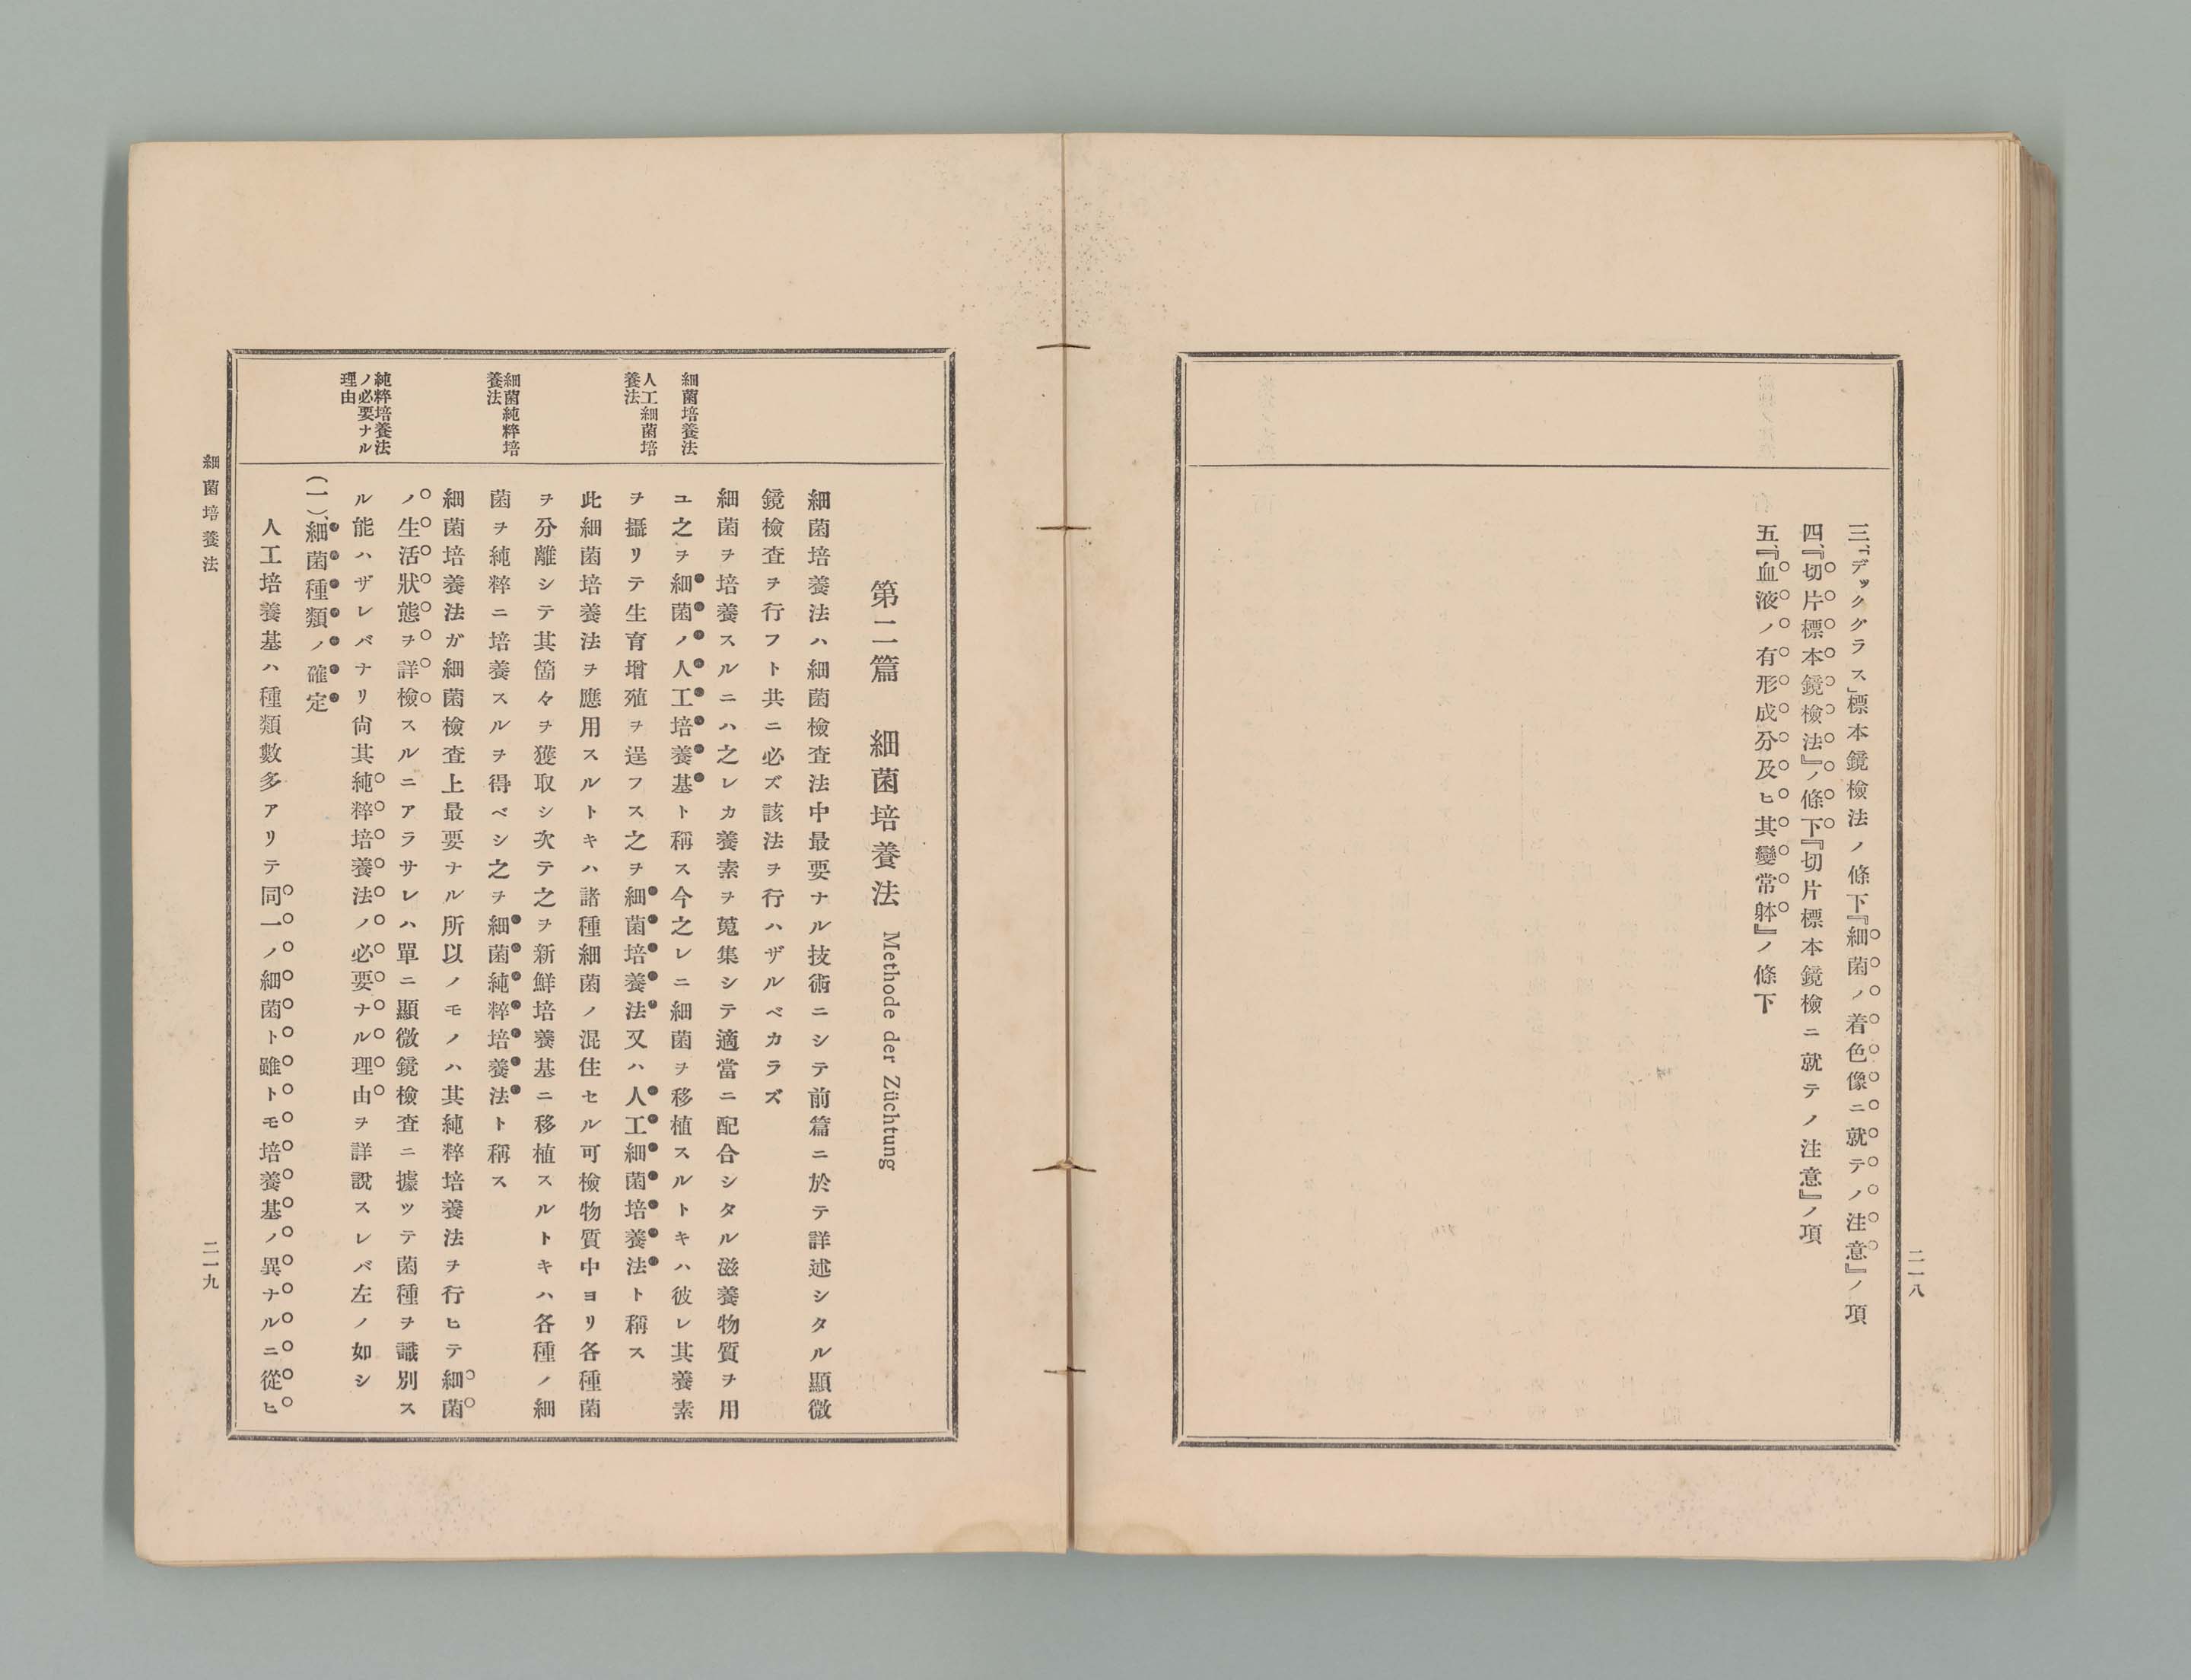 三、「デックグラス」標本鏡檢法ノ條下『細菌ノ着色像ニ就テノ注意』ノ項
四、『切片標本鏡檢法』ノ條下『切片標本鏡檢ニ就テノ注意』ノ項
五、『血液ノ有形成分及ヒ其變常躰』ノ條下
二一八
第二篇　細菌培養法 Methode der Züchtung
細菌培養法ハ細菌檢査法中最要ナル技術ニシテ前篇ニ於テ詳述シタル顯微
鏡檢査ヲ行フト共ニ必ズ該法ヲ行ハザルベカラズ
細菌培養法
細菌ヲ培養スルニハ之レカ養素ヲ蒐集シテ適當ニ配合シタル滋養物質ヲ用
ユ之ヲ細菌ノ人工培養基ト稱ス今之レニ細菌ヲ移植スルトキハ彼レ其養素
人工細菌培
養法
ヲ攝リテ生育增殖ヲ逞フス之ヲ細菌培養法又ハ人工細菌培養法ト稱ス
此細菌培養法ヲ應用スルトキハ諸種細菌ノ混住セル可檢物質中ヨリ各種菌
ヲ分離シテ其箇々ヲ獲取シ次テ之ヲ新鮮培養基ニ移植スルトキハ各種ノ細
細菌純粹培
養法
菌ヲ純粹ニ培養スルヲ得ベシ之ヲ細菌純粹培養法ト稱ス
細菌培養法ガ細菌檢査上最要ナル所以ノモノハ其純粹培養法ヲ行ヒテ細菌
ノ生活狀態ヲ詳檢スルニアラサレハ單ニ顯微鏡檢査ニ據ツテ菌種ヲ識別ス
純粹培養法
ノ必要ナル
理由
ル能ハザレバナリ尙其純粹培養法ノ必要ナル理由ヲ詳說スレバ左ノ如シ
(一)、細菌種類ノ確定
人工培養基ハ種類數多アリテ同一ノ細菌ト雖トモ培養基ノ異ナルニ從ヒ
細菌培養法
二一九